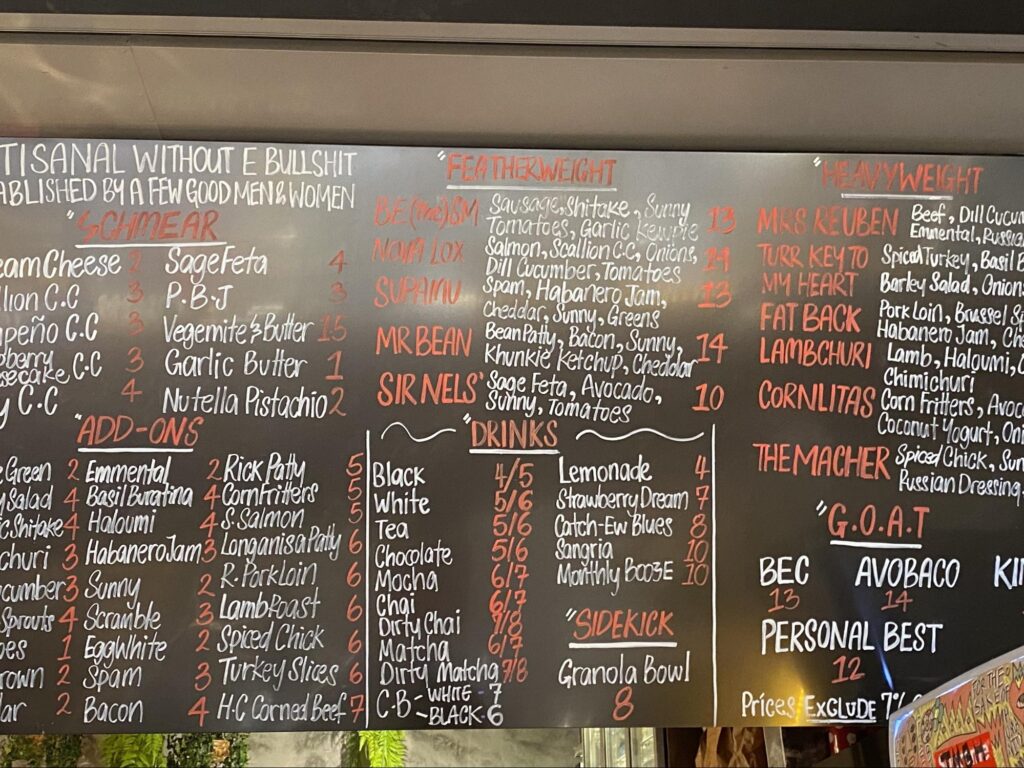 TISANAL WITHOUT E BULLSHIT
ABLISHED BY A FEW GOOD MEN & WOMEN
"SCHMEAR
eam Cheese 2
llion C.C 3
peño C.C 3
berry
esecake C.C 3
y C.C 4
Sage Feta 4
P.B.J 3
Vegemite & Butter 1.5
Garlic Butter 1
Nutella Pistachio 2
"ADD-ONS
e Green 2
y Salad 4
ic Shitake 4
churi 3
cumber 3
Sprouts 4
oes 1
rown 2
ar 2
Emmental 2
Basil Buratina 4
Haloumi 4
Habanero Jam 3
Sunny 2
Scramble 3
Egg White 2
Spam 3
Bacon 4
Rick Patty 5
Corn Fritters 5
S. Salmon 5
Longanisa Patty 6
R. Pork Loin 6
Lamb Roast 6
Spiced Chick 6
Turkey Slices 6
H.C Corned Beef 7
"FEATHERWEIGHT
BE(me)SM Sausage, Shitake, Sunny
Tomatoes, Garlic Kewpie 13
NOVA LOX Salmon, Scallion C.C, Onions,
Dill Cucumber, Tomatoes
SUPAMU Spam, Habanero Jam, 13
Cheddar, Sunny, Greens
MR BEAN Bean Patty, Bacon, Sunny, 14
Khunkie Ketchup, Cheddar
SIR NELS' Sage Feta, Avocado, 10
Sunny, Tomatoes
"DRINKS
Black 4/5
White 5/6
Tea 5/6
Chocolate 5/6
Mocha 6/7
Chai 6/7
Dirty Chai 7/8
Matcha 6/7
Dirty Matcha 7/8
C.B - WHITE - 7
- BLACK - 6
Lemonade 4
Strawberry Dream 7
Catch-Ew Blues 8
Sangria 10
Monthly BOOZE 10
"SIDEKICK
Granola Bowl
8
"HEAVYWEIGHT
MRS REUBEN Beef, Dill Cucum
Emmental, Russia
TURR KEY TO Spiced Turkey, Basil B
MY HEART Barley Salad, Onions
FAT BACK Pork Loin, Brussel S
Habanero Jam, Che
LAMBCHURI Lamb, Haloumi, C
Chimichuri
CORNLITAS Corn Fritters, Avoc
Coconut Yogurt, Oni
THE MACHER Spiced Chick, Sun
Russian Dressing
"G.O.A.T
BEC AVOBACO KI
13 14
PERSONAL BEST
12
Prices EXCLUDE 7%